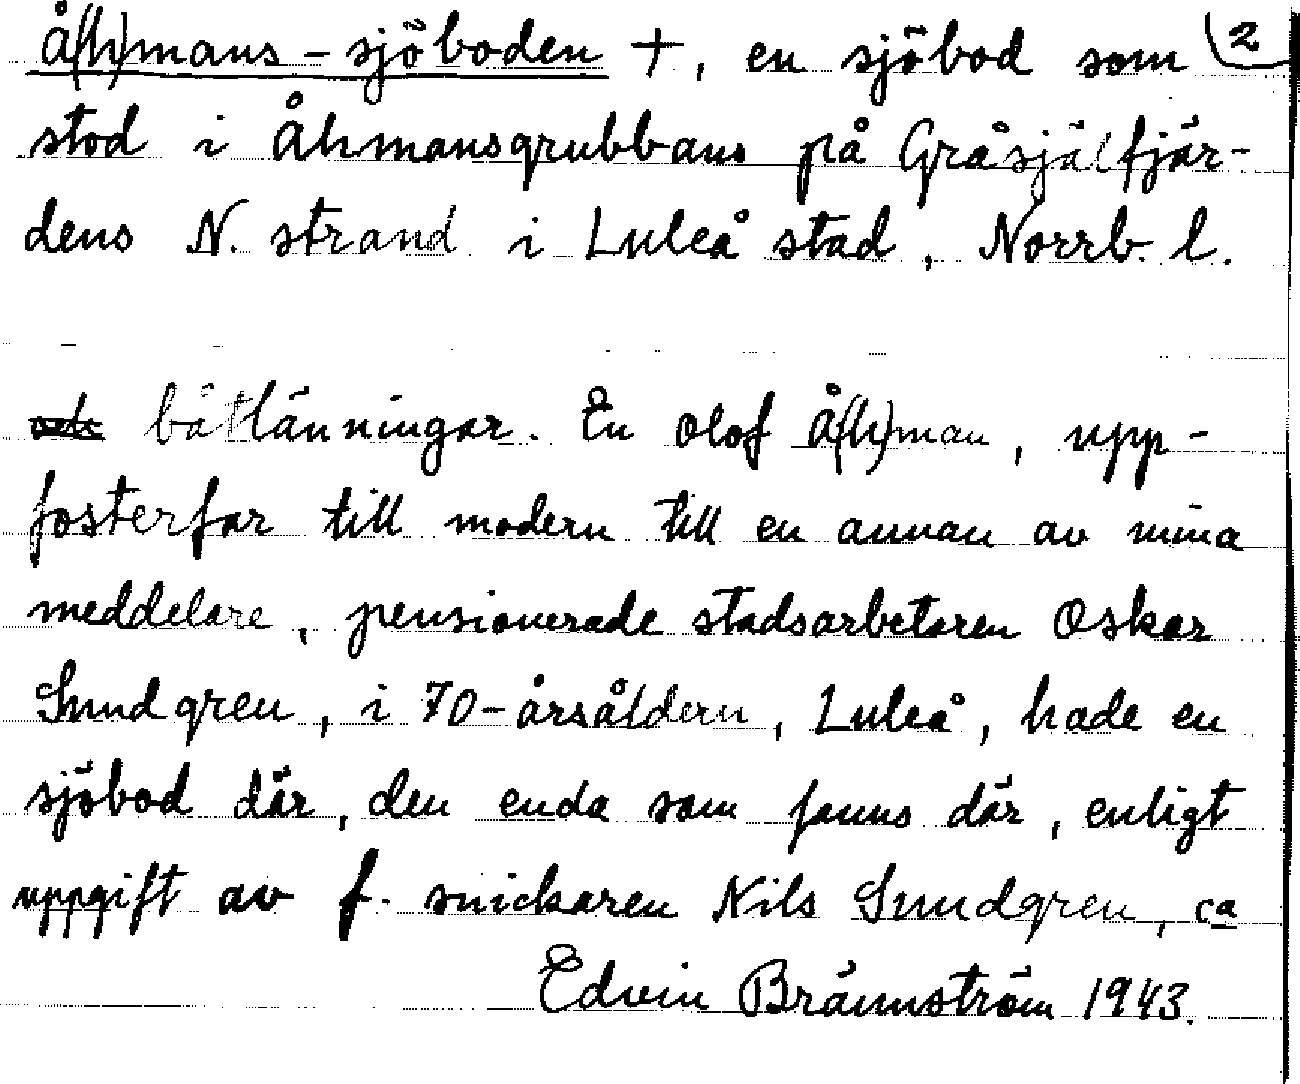 Å(h)mans-sjöboden +, en sjöbod som 2
stod i Åhmansgrubbans på Gråsjälfjär-
dens N. strand i Luleå stad, Norrb. l.
båtlänningar. En Olof Å(h)man, upp-
fosterfar till modern till en annan av mina
meddelare, pensionerade stadsarbetaren Oskar
Sundgren, i 70-årsåldern, Luleå, hade en
sjöbod där, den enda som fanns där, enligt
uppgift av f. snickaren Nils Sundgren, ca
Edvin Brännström 1943.